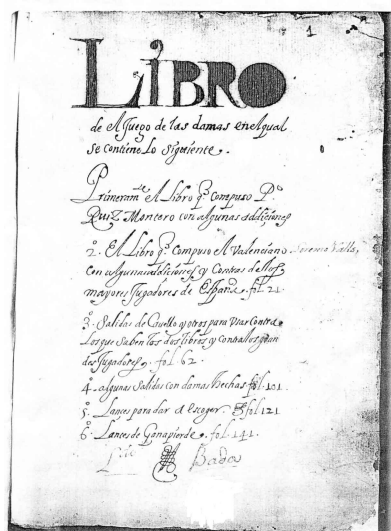 1
LIBRO
de el Juego de las damas en el qual
se contiene Lo Siguiente.
Primeram.te el Libro q.e compuso P.o
Ruiz Montero con algunas addiçiones
2.o El Libro q.e compuso el Valenciano Lorenço Valls,
con algunas addiciones y Contras de los
mayores Jugadores de España. fol. 21.
3.o Salidas de Cauello y otros para Usar Contra
Los que Saben los dos libros y contra los gran
des Jugadores, fol. 62.
4.o algunas Salidas con damas hechas fol. 101
5.o Lances para dar a escoger. fol 121
6.o Lances de Ganapierde. fol. 141.
Badoy